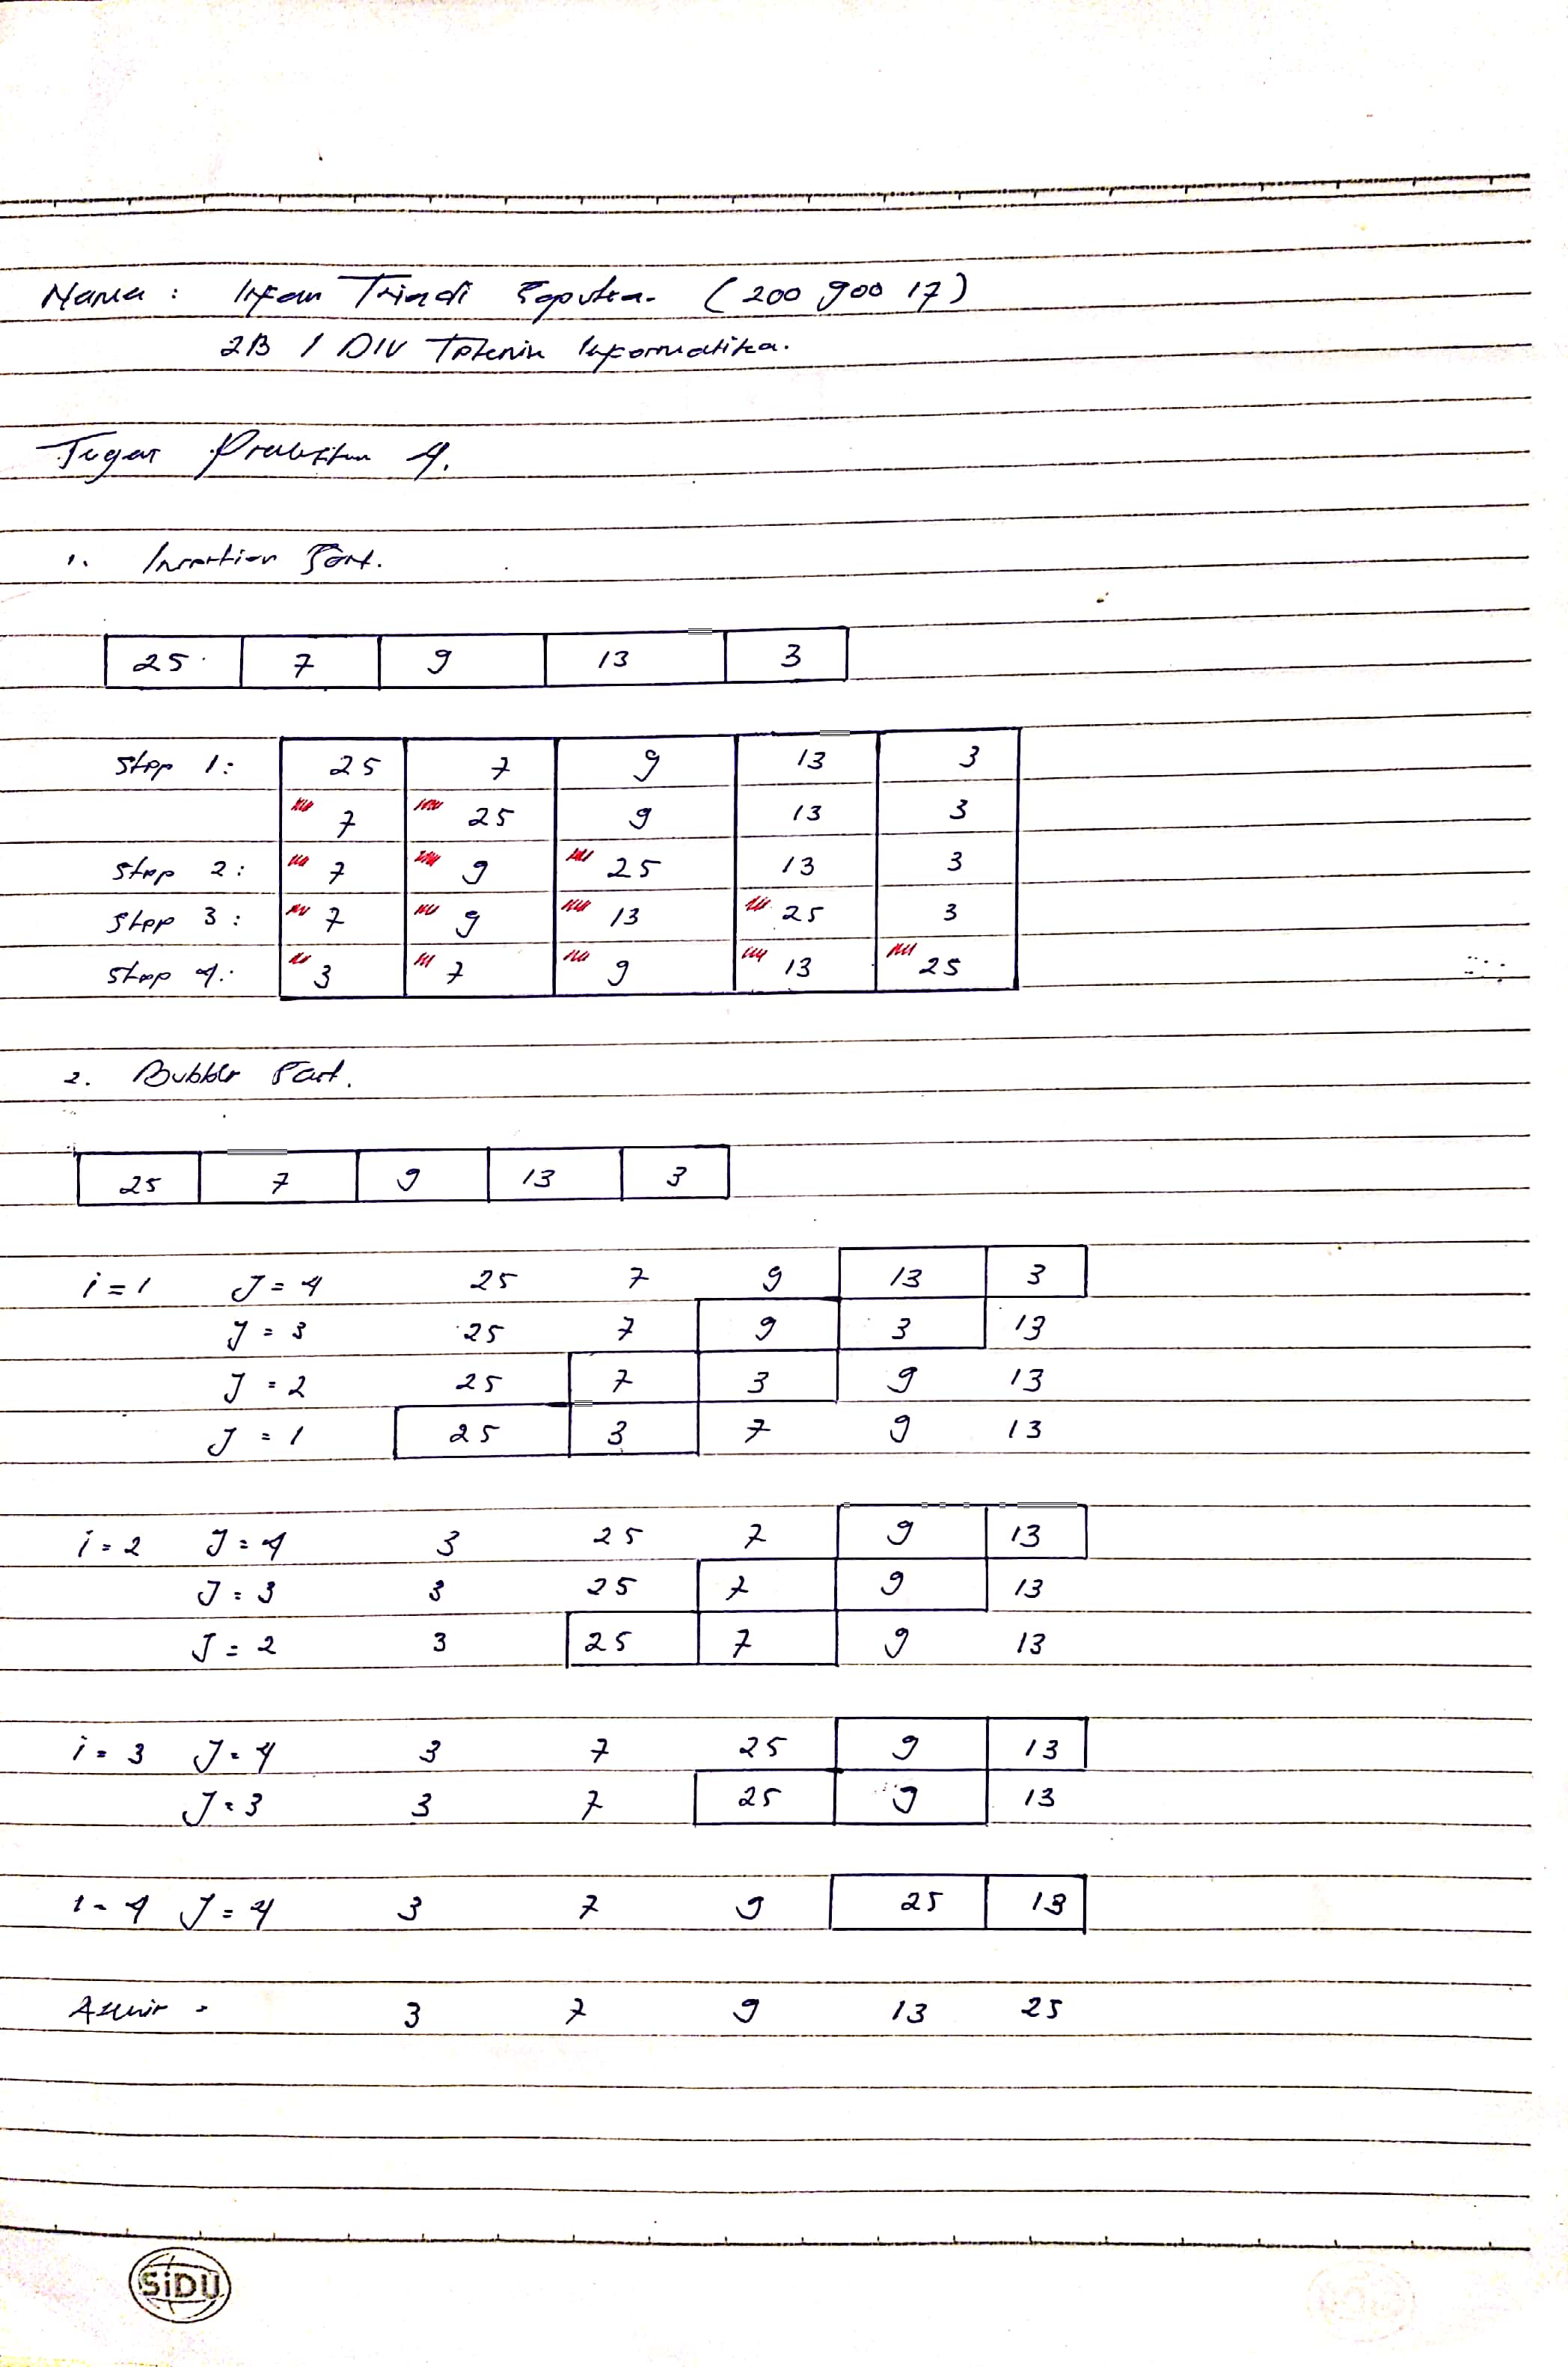 Nama : Irfan Triadi Saputra. (200 900 17)
2B / DIV Teknik Informatika.
Tugas Praktikum 4.
1. Insertion Sort.
25 7 9 13 3
Step 1: 25 7 9 13 3
7 25 9 13 3
Step 2: 7 9 25 13 3
Step 3: 7 9 13 25 3
Step 4: 3 7 9 13 25
2. Bubble Sort.
25 7 9 13 3
i = 1 J = 4 25 7 9 13 3
J = 3 25 7 9 3 13
J = 2 25 7 3 9 13
J = 1 25 3 7 9 13
i = 2 J = 4 3 25 7 9 13
J = 3 3 25 7 9 13
J = 2 3 25 7 9 13
i = 3 J = 4 3 7 25 9 13
J = 3 3 7 25 9 13
i = 4 J = 4 3 7 9 25 13
Akhir = 3 7 9 13 25
SiDU